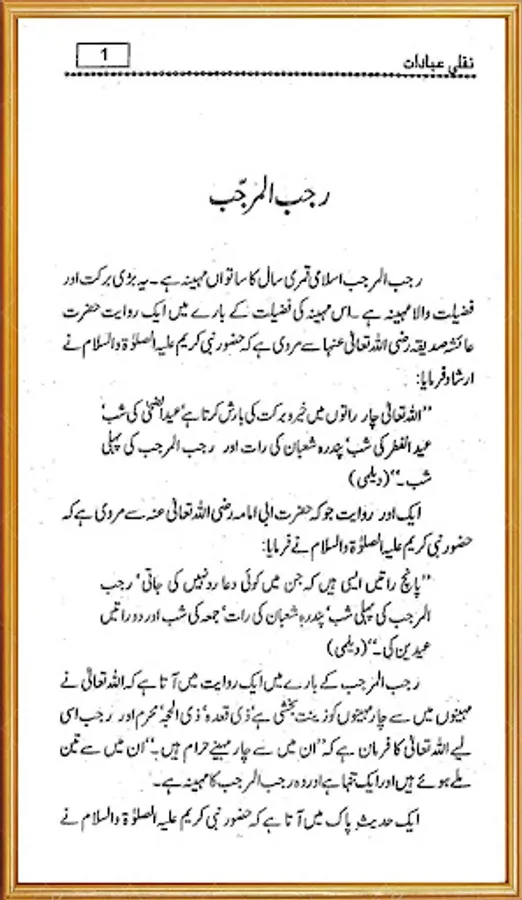 نفلی عبادات
1
رجب المرجّب
رجب المرجب اسلامی قمری سال کا ساتواں مہینہ ہے۔ یہ بڑی برکت اور
فضیلت والا مہینہ ہے۔ اس مہینہ کی فضیلت کے بارے میں ایک روایت حضرت
عائشہ صدیقہ رضی اللہ تعالیٰ عنہا سے مروی ہے کہ حضور نبی کریم علیہ الصلوٰۃ والسلام نے
ارشاد فرمایا:
"اللہ تعالیٰ چار راتوں میں خیر و برکت کی بارش کرتا ہے' عید الضحیٰ کی شب'
عید الفطر کی شب' پندرہ شعبان کی رات اور رجب المرجب کی پہلی
شب۔" (دیلمی)
ایک اور روایت جو کہ حضرت ابی امامہ رضی اللہ تعالیٰ عنہ سے مروی ہے کہ
حضور نبی کریم علیہ الصلوٰۃ والسلام نے فرمایا:
"پانچ راتیں ایسی ہیں کہ جن میں کوئی دعا رد نہیں کی جاتی' رجب
المرجب کی پہلی شب' پندرہ شعبان کی رات' جمعہ کی شب اور دو راتیں
عیدین کی۔" (دیلمی)
رجب المرجب کے بارے میں ایک روایت میں آتا ہے کہ اللہ تعالیٰ نے
مہینوں میں سے چار مہینوں کو زینت بخشی ہے' ذی قعدہ' ذی الحجہ' محرم اور رجب اسی
لیے اللہ تعالیٰ کا فرمان ہے کہ "ان میں سے چار مہینے حرام ہیں۔" ان میں سے تین
ملے ہوئے ہیں اور ایک تنہا ہے اور وہ رجب المرجب کا مہینہ ہے۔
ایک حدیث پاک میں آتا ہے کہ حضور نبی کریم علیہ الصلوٰۃ والسلام نے